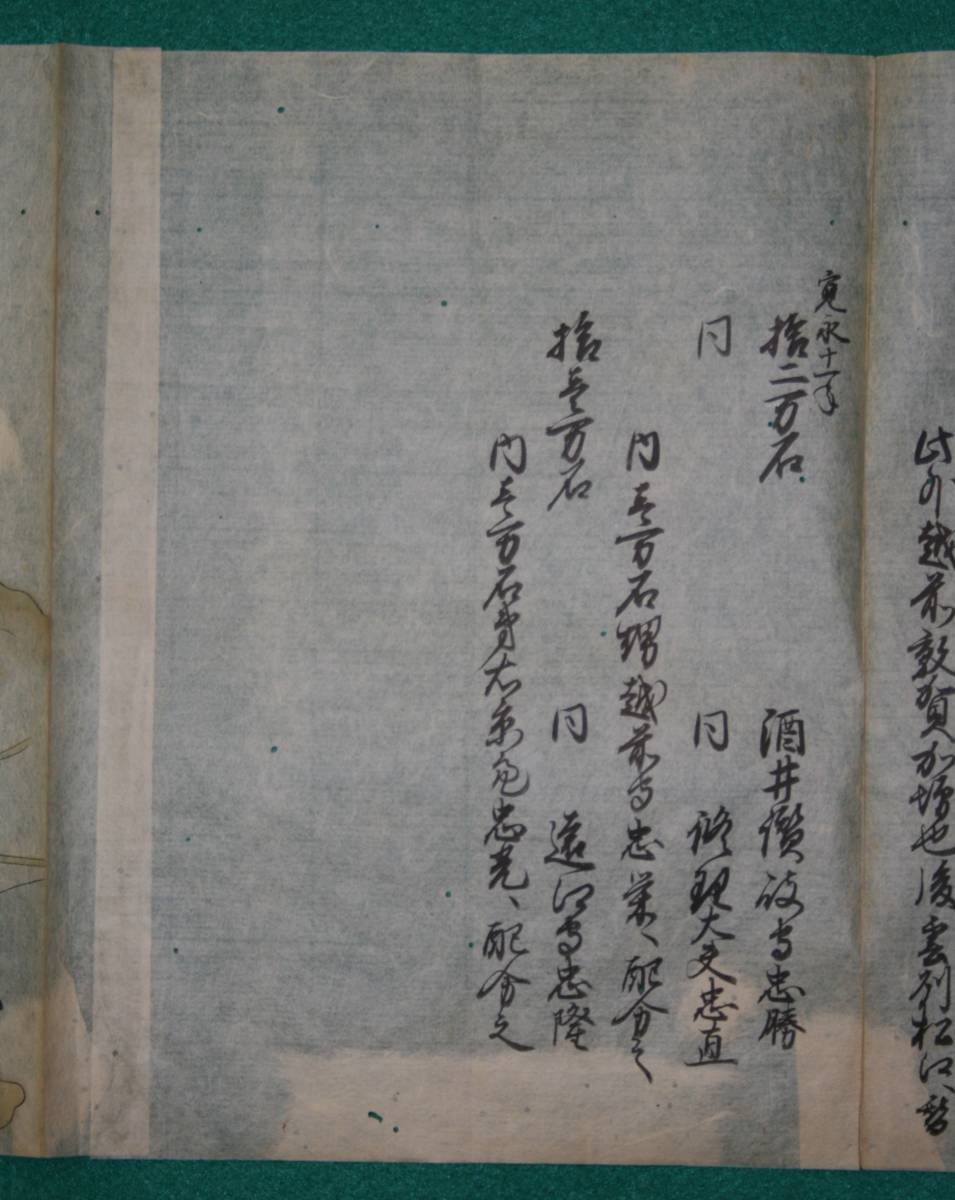 此外越前敦賀加増也後雲州松江へ替
寛永十一年
拾二万石 酒井讃岐守忠勝
同 同 修理大夫忠直
内壱万石甥越前守忠菜へ配分之
拾壱万石 同 遠江守忠隆
内壱万石弟右京亮忠。へ配分之